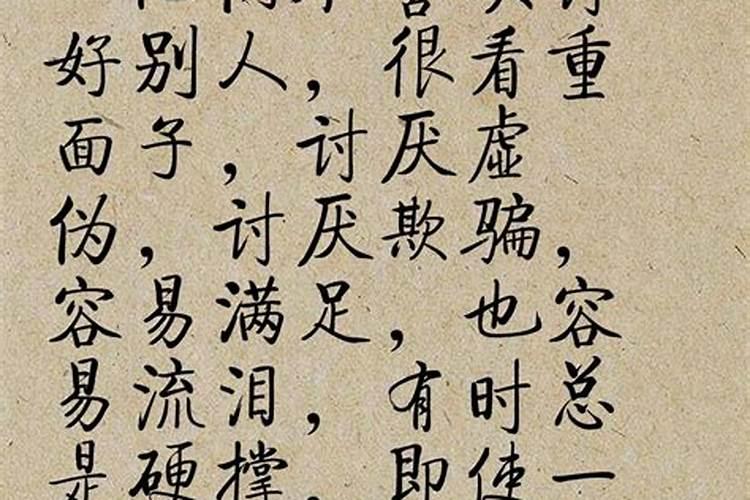 好别人，很看重
面子，讨厌虚
伪，讨厌欺骗，
容易满足，也容
易流泪，有时总
是硬撑，即使一